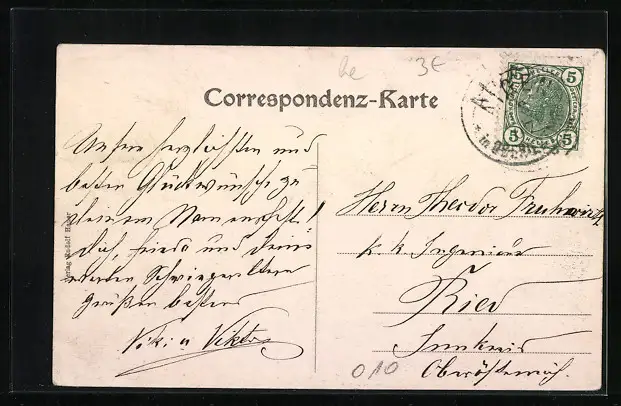 le 3€
Correspondenz-Karte
5 5
5 5
in OBER
Unsere herzlichsten und
besten Glückwünsche zu
deinem Namensfest!
Dich, Frieda und Deine
werten Schwiegereltern
grüßen bestens
Viki u Viktor
Verlag Rudolf
Herrn Theodor Fruhwirth
k. k. Ingenieur
Ried
Innkreis
Oberösterreich.
010